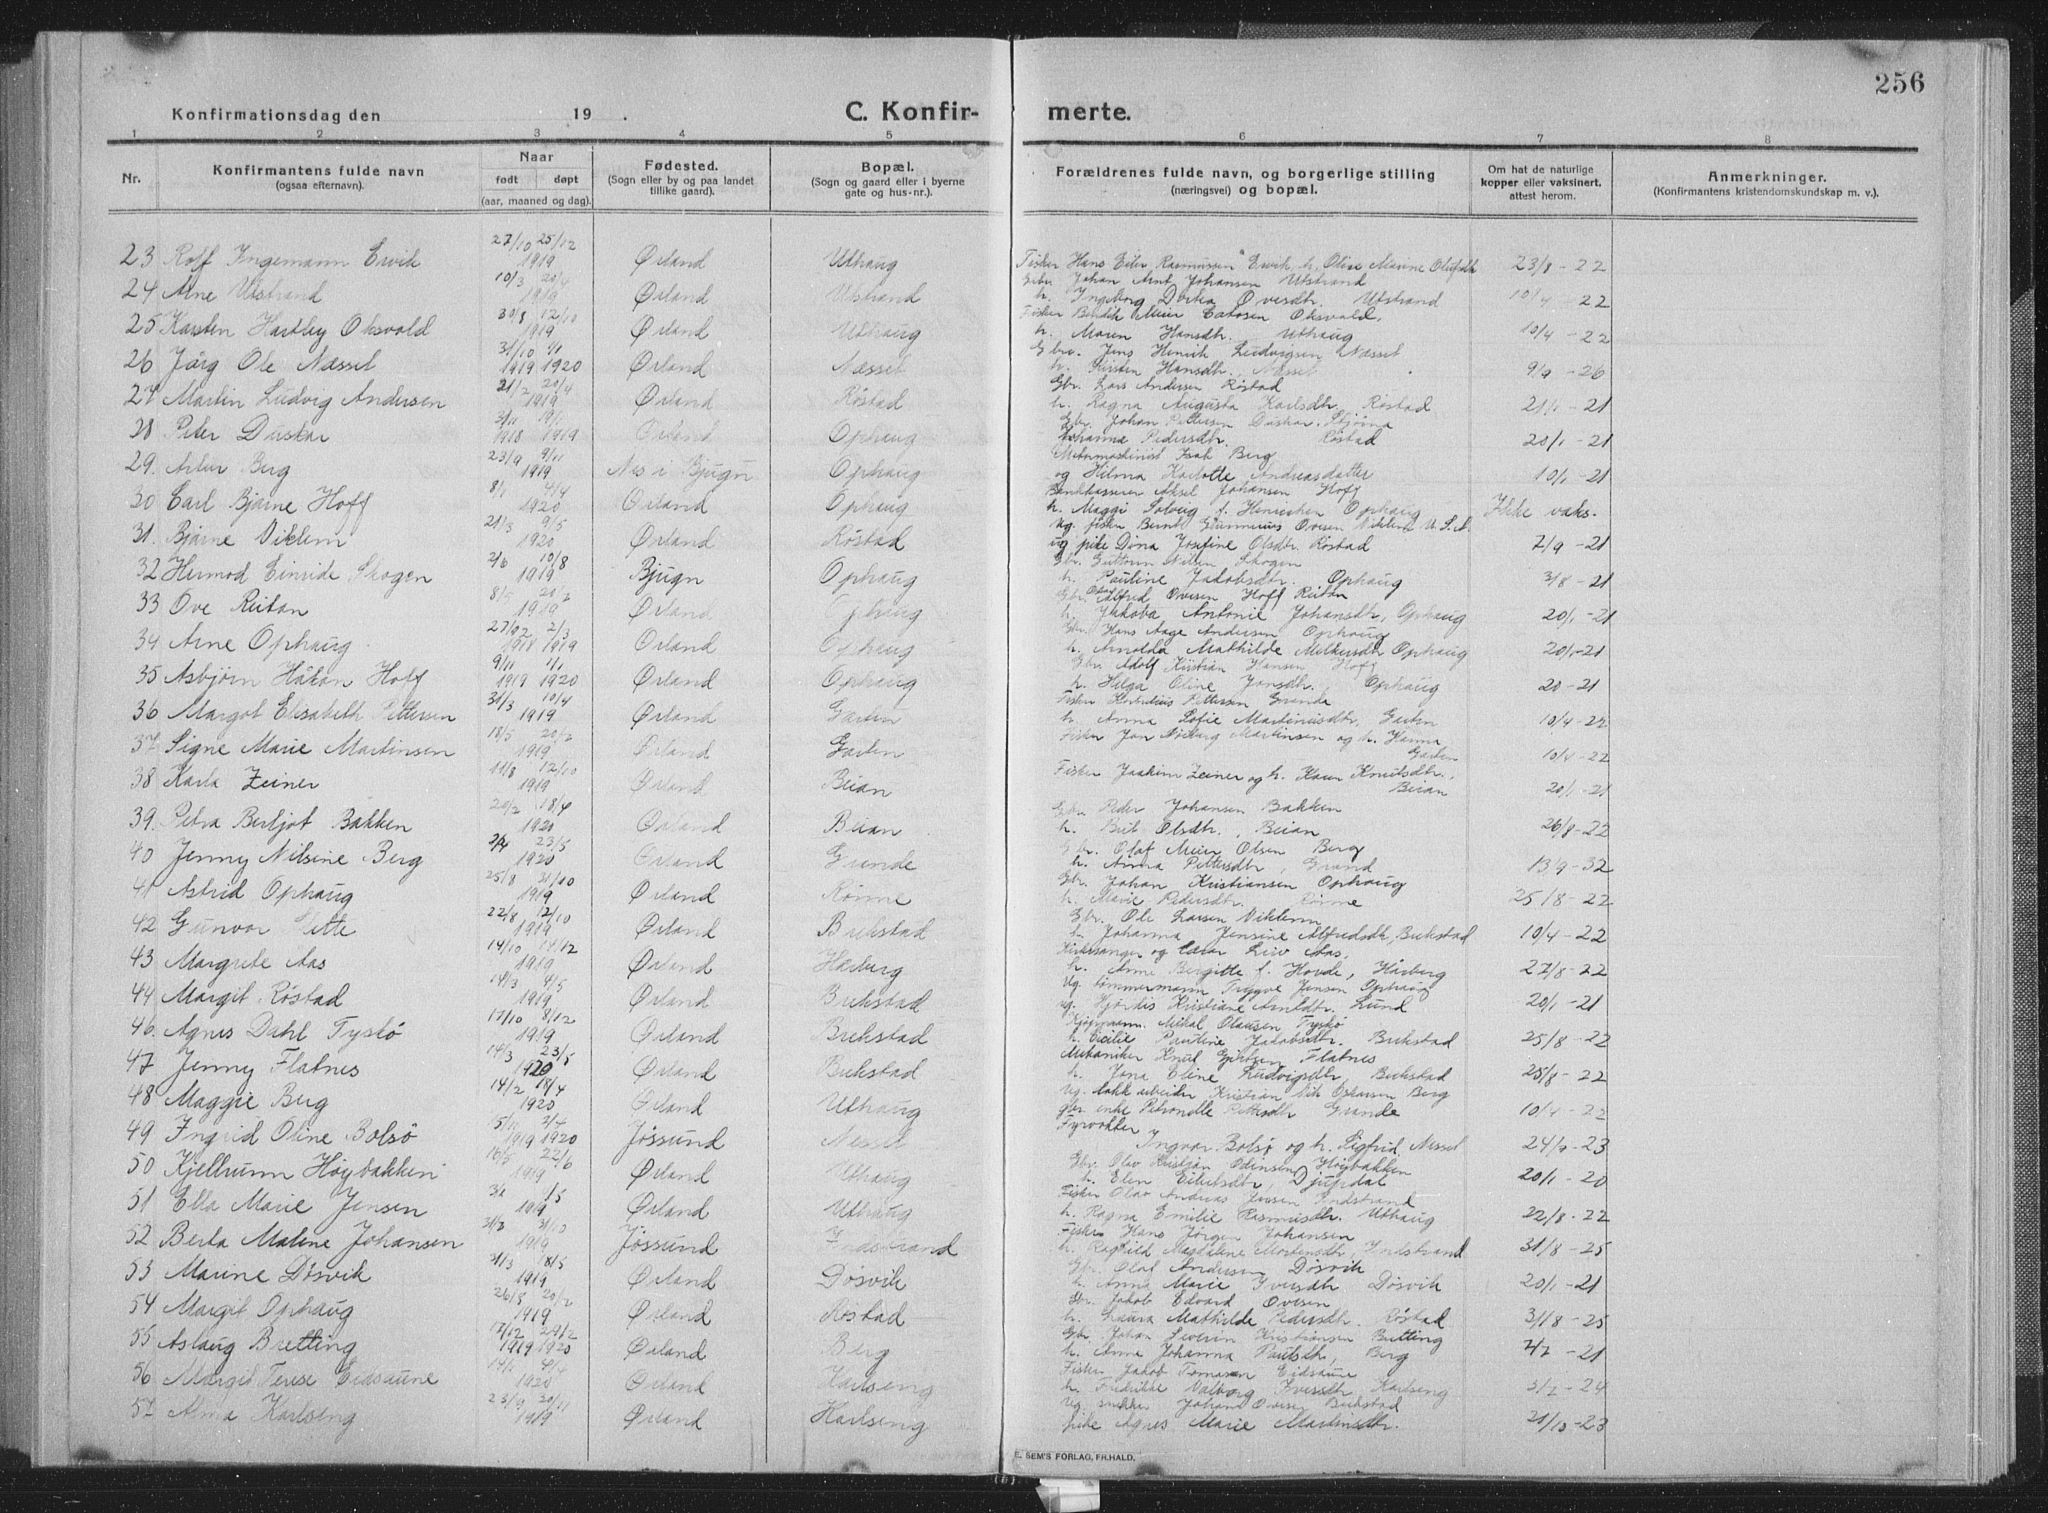 256
Konfirmationsdag den 19 .
C. Konfir- merte.
1 2 3 4 5 6 7 8
Nr.
Konfirmantens fulde navn
(ogsaa efternavn).
Naar
født døpt
(aar, maaned og dag).
Fødested.
(Sogn eller by og paa landet
tillike gaard).
Bopæl.
(Sogn og gaard eller i byerne
gate og hus-nr.).
Forældrenes fulde navn, og borgerlige stilling
(næringsvei) og bopæl.
Om hat de naturlige
kopper eller vaksinert,
attest herom.
Anmerkninger.
(Konfirmantens kristendomskundskap m. v.).
23 Rolf Ingemann Ervik 27/10 25/12 1919 Ørland Uthaug Fisker Hans Eiler Rasmussen Ervik h. Oline Marine Olufsdt 23/8-22
24 Arne Utstrand 10/3 20/4 1919 Ørland Utstrand Gbr. Johan Arnt Johansen Utstrand
h. Ingeborg Dorthea Ovesdtr. Utstrand 10/4-22
25 Karsten Hartley Oksvold 30/8 12/10 1919 Ørland Uthaug Fisker Bendik Meier Oksvold,
h. Maren Hansdtr. Uthaug 10/4-22
26 Jörg Ole Næsset 31/10 1/1 1919 1920 Ørland Næsset Gbr. Jens Henrik Ludvigsen Næsset
h. Kirsten Hansdtr. Næsset 9/9-26
27 Martin Ludvig Andersen 21/2 20/4 1919 Ørland Röstad Gbr. Lars Andersen Röstad
h. Ragna Augusta Karlsdtr, Röstad 21/1-21
28 Peter Duskar 1918 1919 Ørland Ophaug Gbr. Johan Pettersen Duskar, Stjörna
Johanna Pedersdtr. Röstad 20/1-21
29. Arter Berg 23/9 9/11 1919 Nes i Bjugn Ophaug Motormaskinist Isak Berg
og Hilma Karlotte Andreasdatter 10/1-21
30 Carl Bjarne Hoff 8/1 4/4 1920 Ørland Ophaug Bankkasserer Aksel Johansen Hoff
h. Maggi Solveig f. Henriksen Ophaug Ikke vaks.
31. Bjarne Viklem 21/3 9/5 1920 Ørland Röstad Ug. fisker Bernt Gunnerius Ovesen Viklem U.S.A.
ug pike Dina Josefine Olsdtr. Röstad 7/9-21
32 Hermod Einride Skogen 2/6 10/8 1919 Bjugn Ophaug Gbr. Guttorm Nilsen Skogen
h. Pauline Jakobsdtr. Ophaug 3/8-21
33 Ove Reitan 8/5 20/7 1919 Ørland Ophaug Gbr. Alfred Ovesen Hoff Reitan
h. Jakoba Antonie Johansdtr, Ophaug 20/1-21
34 Arne Ophaug 27/12 2/3 1918 1919 Ørland Ophaug Gbr. Hans Aage Andersen Ophaug
h. Arnolda Mathilde Melkersdtr Ophaug 20/1-21
35 Asbjörn Håkon Hoff 9/11 1/1 1919 1920 Ørland Ophaug Gbr. Adolf Kristian Hansen Hoff
h. Helga Oline Jonsdtr. Ophaug 20-21
36 Margot Elisabeth Pettersen 31/3 10/4 1919 Ørland Garten Fisker Pettersen Grande
h. Anna Sofie Martiniusdtr. Garten 10/4-22
37 Signe Marie Martinsen 18/5 20/7 1919 Ørland Garten Fisker Jon Nörberg Martinsen og h. Hanna
Garten 10/4-22
38 Karla Zeiner 11/8 12/10 1919 Ørland Beian Fisker Joakim Zeiner og h. Karen Knutsdtr.,
Beian 20/1-21
39. Petra Berljot Bakken 20/2 18/4 1920 Ørland Beian Gbr. Peder Johansen Bakken
h. Brit Olsdtr., Beian 26/8-22
40 Jenny Nilsine Berg 23/5 1920 Ørland Grande Gbr. Olaf Meier Olsen Berg
h. Anna Pettersdtr, Grand 13/9-32
41 Astrid Ophaug 25/8 21/10 1919 Ørland Rönne Gbr. Johan Kristiansen Ophaug
h. Marie Pedersdtr. Rönne 25/8-22
42 Gunvor Sette 22/8 12/10 1919 Ørland Brekstad Gbr. Ole Larsen Viklem
h. Johanna Jensine Alfredsdtr, Brekstad 10/4-22
43 Margrete Aas 14/10 14/12 1919 Ørland Hårberg Kirkesanger og Lærer Aas,
h. Anne Bergitte f. Hovde, Hårberg 27/8-22
44 Margit Röstad 14/3 4/5 1919 Ørland Brekstad Ug. tömmermann Trygve Jensen Ophaug
ug. Hjördis Kristiane Arntdtr. Lund 20/1-21
46. Agnes Dahl Tyskö 17/10 8/12 1919 Ørland Brekstad Kjöpmann Mikal Olausen Tyskö
h. Cecilie Pauline Jakobsdtr. Brekstad 25/8-22
47 Jenny Flatnes 14/3 23/5 1920 Ørland Brekstad Mekaniker Knut Flatnes
h. Jena Eline Ludvigsdtr, Brekstad 25/8-22
48 Maggie Berg 14/2 18/4 1920 Ørland Uthaug Ug. takk arbeider Kristian Oskarsen Berg
gbr. enke Petronelle Pettersdtr Grande 10/4-22
49 Ingrid Oline Bolsö 15/11 1919 1920 Jössund Nesset Fyrvokter
Ingvar Bolsö og h. Sigfrid, Nesset 24/9-23
50 Kjellrunn Höybakken 16/5 22/6 1919 Ørland Uthaug Gbr. Olav Kristjan Odinsen Höybakken
h. Elen Eilertsdtr, Djupdal 20/1-20
51 Ella Marie Jensen 1919 Ørland Uthaug Fisker Olav Andreas Jensen Indstrand
h. Ragna Emilie Rasmusdtr. Uthaug 22/8-22
52 Berta Malene Johansen 21/3 31/10 1919 Jössund Indstrand Fisker Hans Jörgen Johansen
h. Raghild Magdalene Mortensdtr, Indstrand 31/8-25
53 Marine Dösvik 21/3 18/5 1919 Ørland Dösvik Gbr. Olaf Andersen Dösvik
h. Anna Marie Iversdtr Dösvik 20/1-21
54 Margit Ophaug 26/8 20/2 1919 Ørland Röstad Gbr. Jakob Edvard Ovesen
h. Laura Mathilde Pedersdtr. Röstad 31/8-25
55 Aslaug Bretting 17/12 29/2 1919 1920 Ørland Berg Gbr. Johan Severin Kristiansen Bretting
h. Anne Johanna Paulsdtr, Berg 7/7-21
56 Margit Terese Eidsaune 14/1 4/4 1920 Ørland Karlseng Fisker Jakob Tomasen Eidsaune
h. Fredrikke Valborg Iversdtr Karlseng 3/7-24
57 Alma Karlseng 23/9 20/11 1919 Ørland Karlseng Ug. snekker Johan Ovesen Brekstad
pike Agnes Marie Martinsdtr. 21/10-23
E. SEM'S FORLAG, FR.HALD.